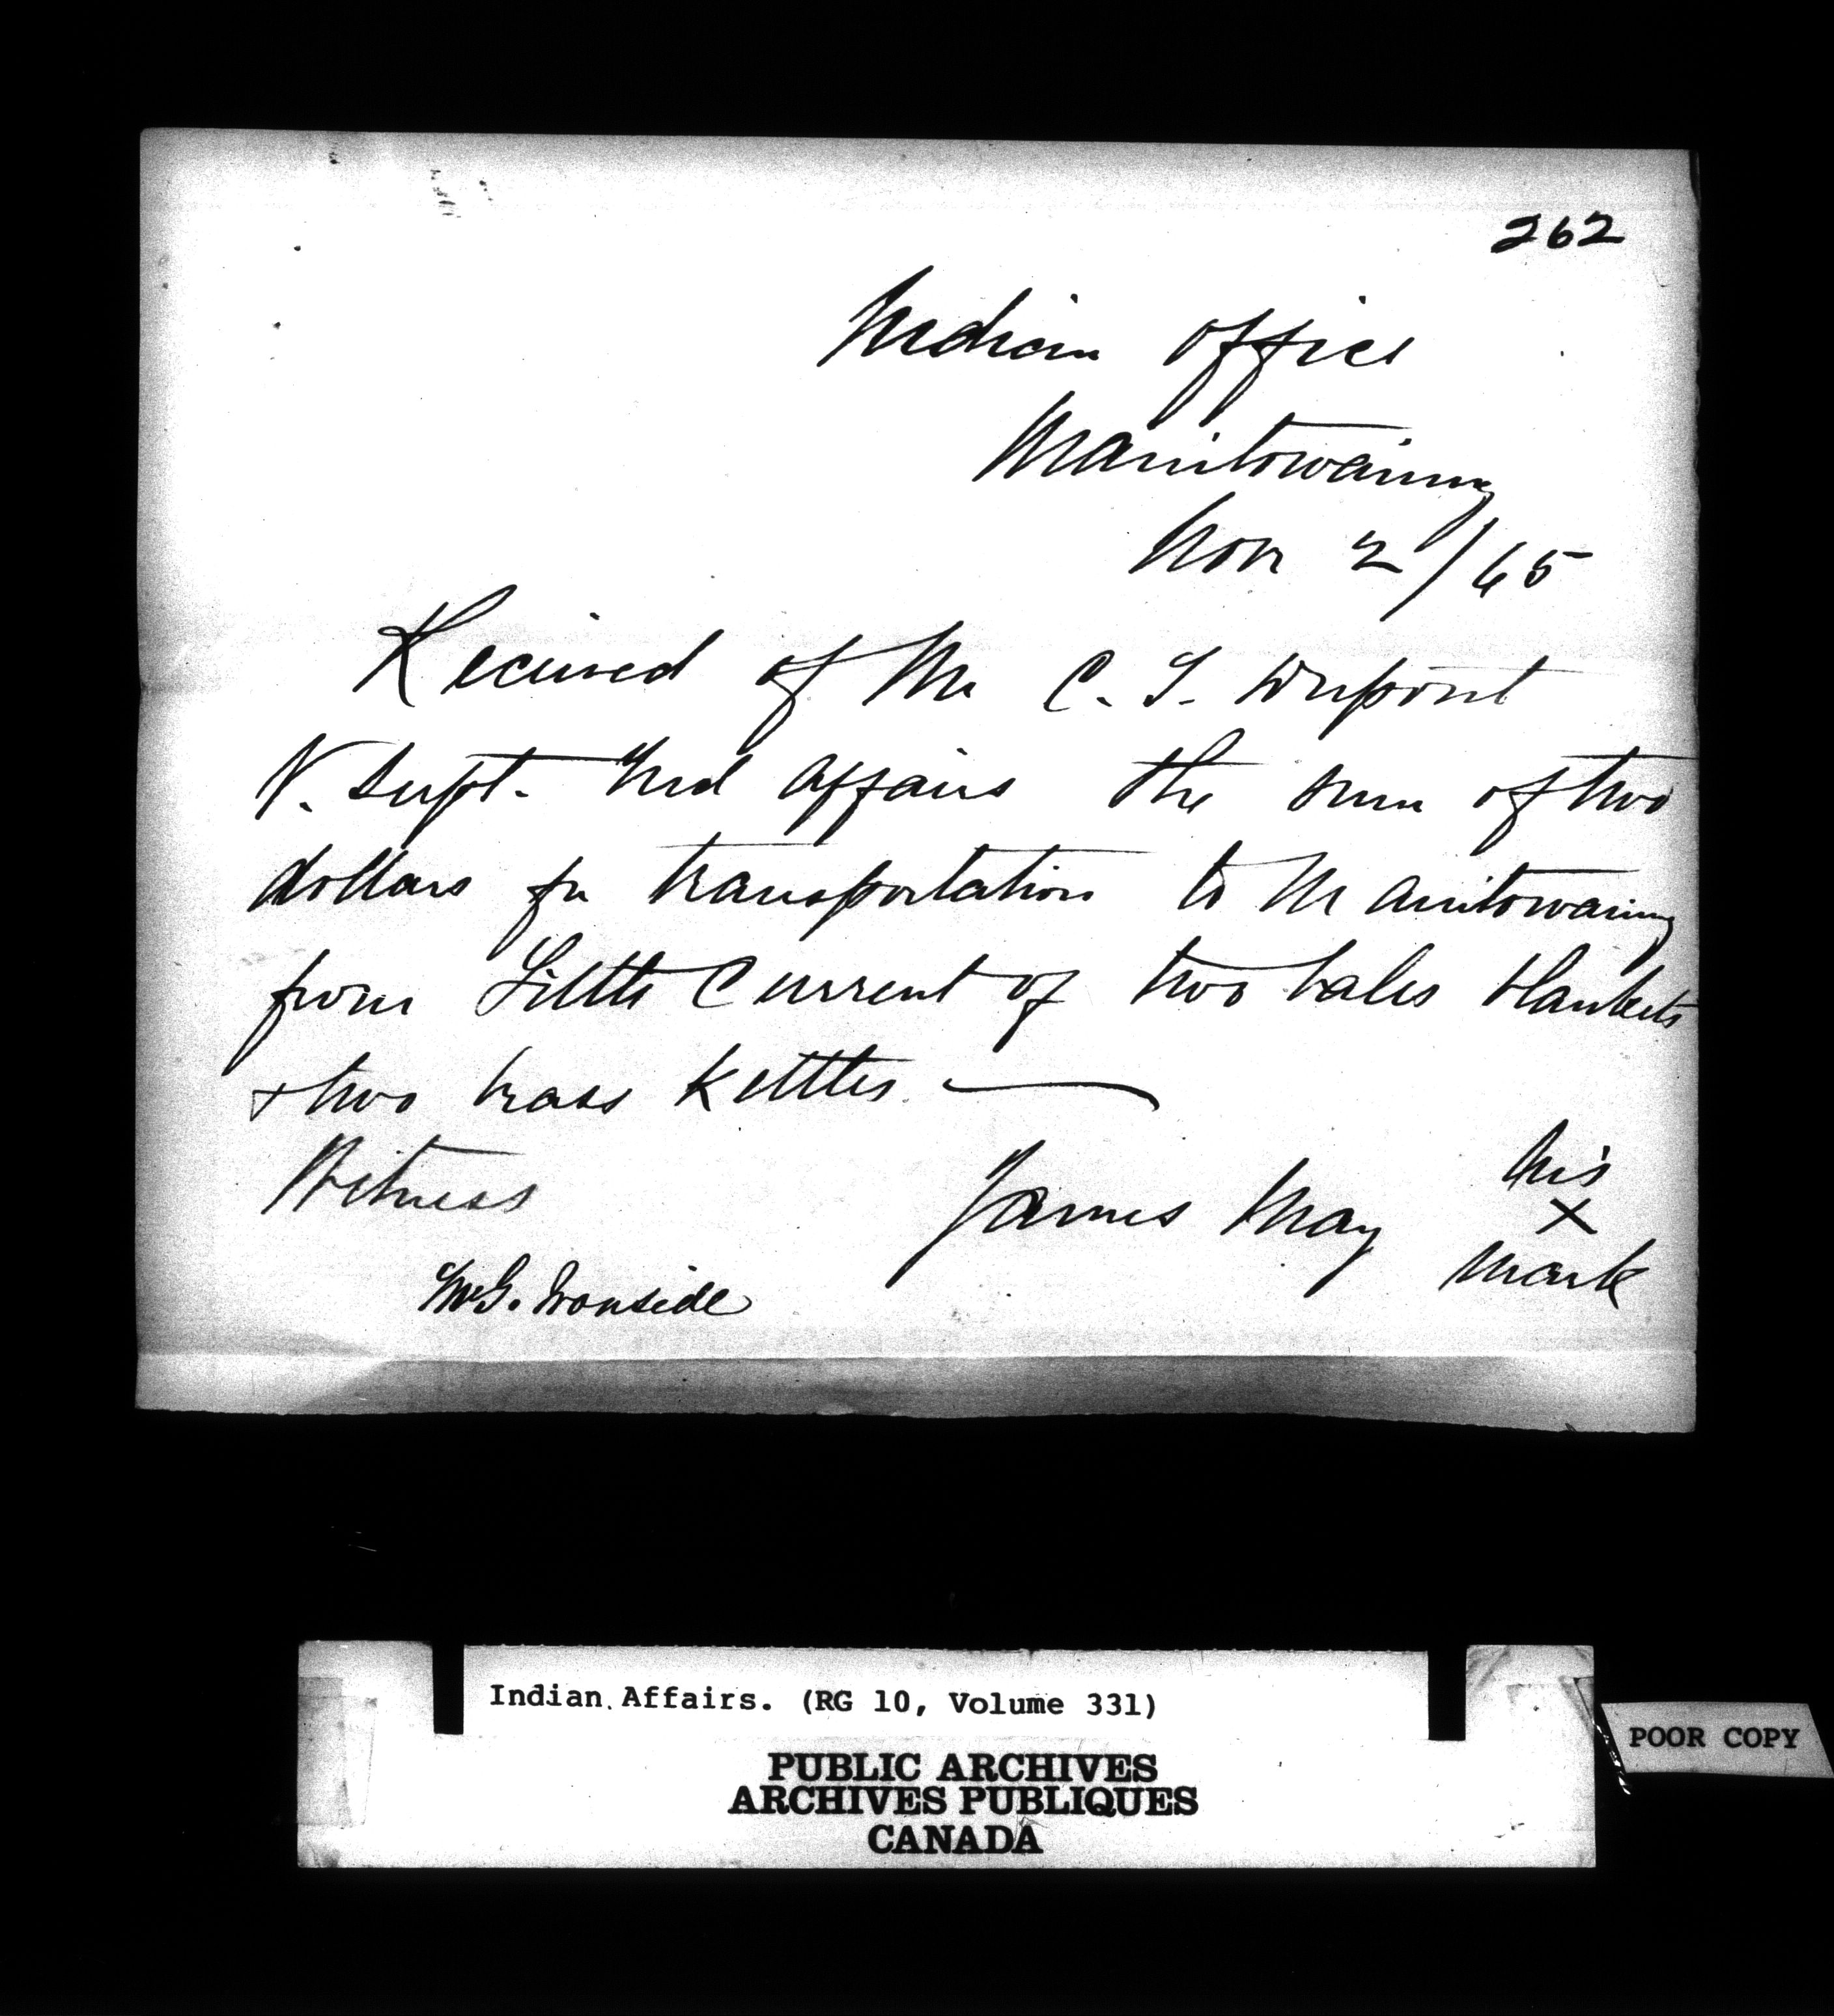 262
Indian Office
Manitowaning
Nov 2/65
Received of Mr C. T. Dupont
V. Supt. Ind Affairs the sum of two
dollars for transportation to Manitowaning
from Little Current of two bales blankets
+ two brass kettles.
Witness
James May his X mark
Wm G. Ironside
Indian Affairs. (RG 10, Volume 331)
PUBLIC ARCHIVES
ARCHIVES PUBLIQUES
CANADA
POOR COPY